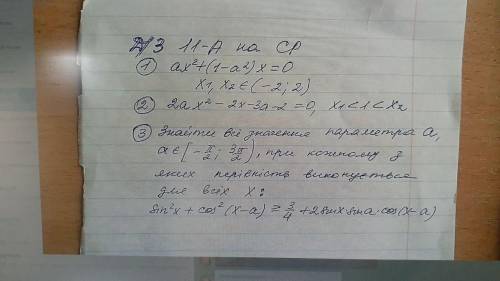 Д/З 11-А на СР
① ax²+(1-a²)x=0
x₁,x₂∈(-2;2)
② 2ax²-2x-3a-2=0, x₁<1<x₂
③ Знайти всі значення параметра a,
a∈[-π/2; 3π/2), при кожному з
яких нерівність виконується
для всіх x:
sin²x+cos²(x-a)≥3/4+2sinx sina·cos(x-a)